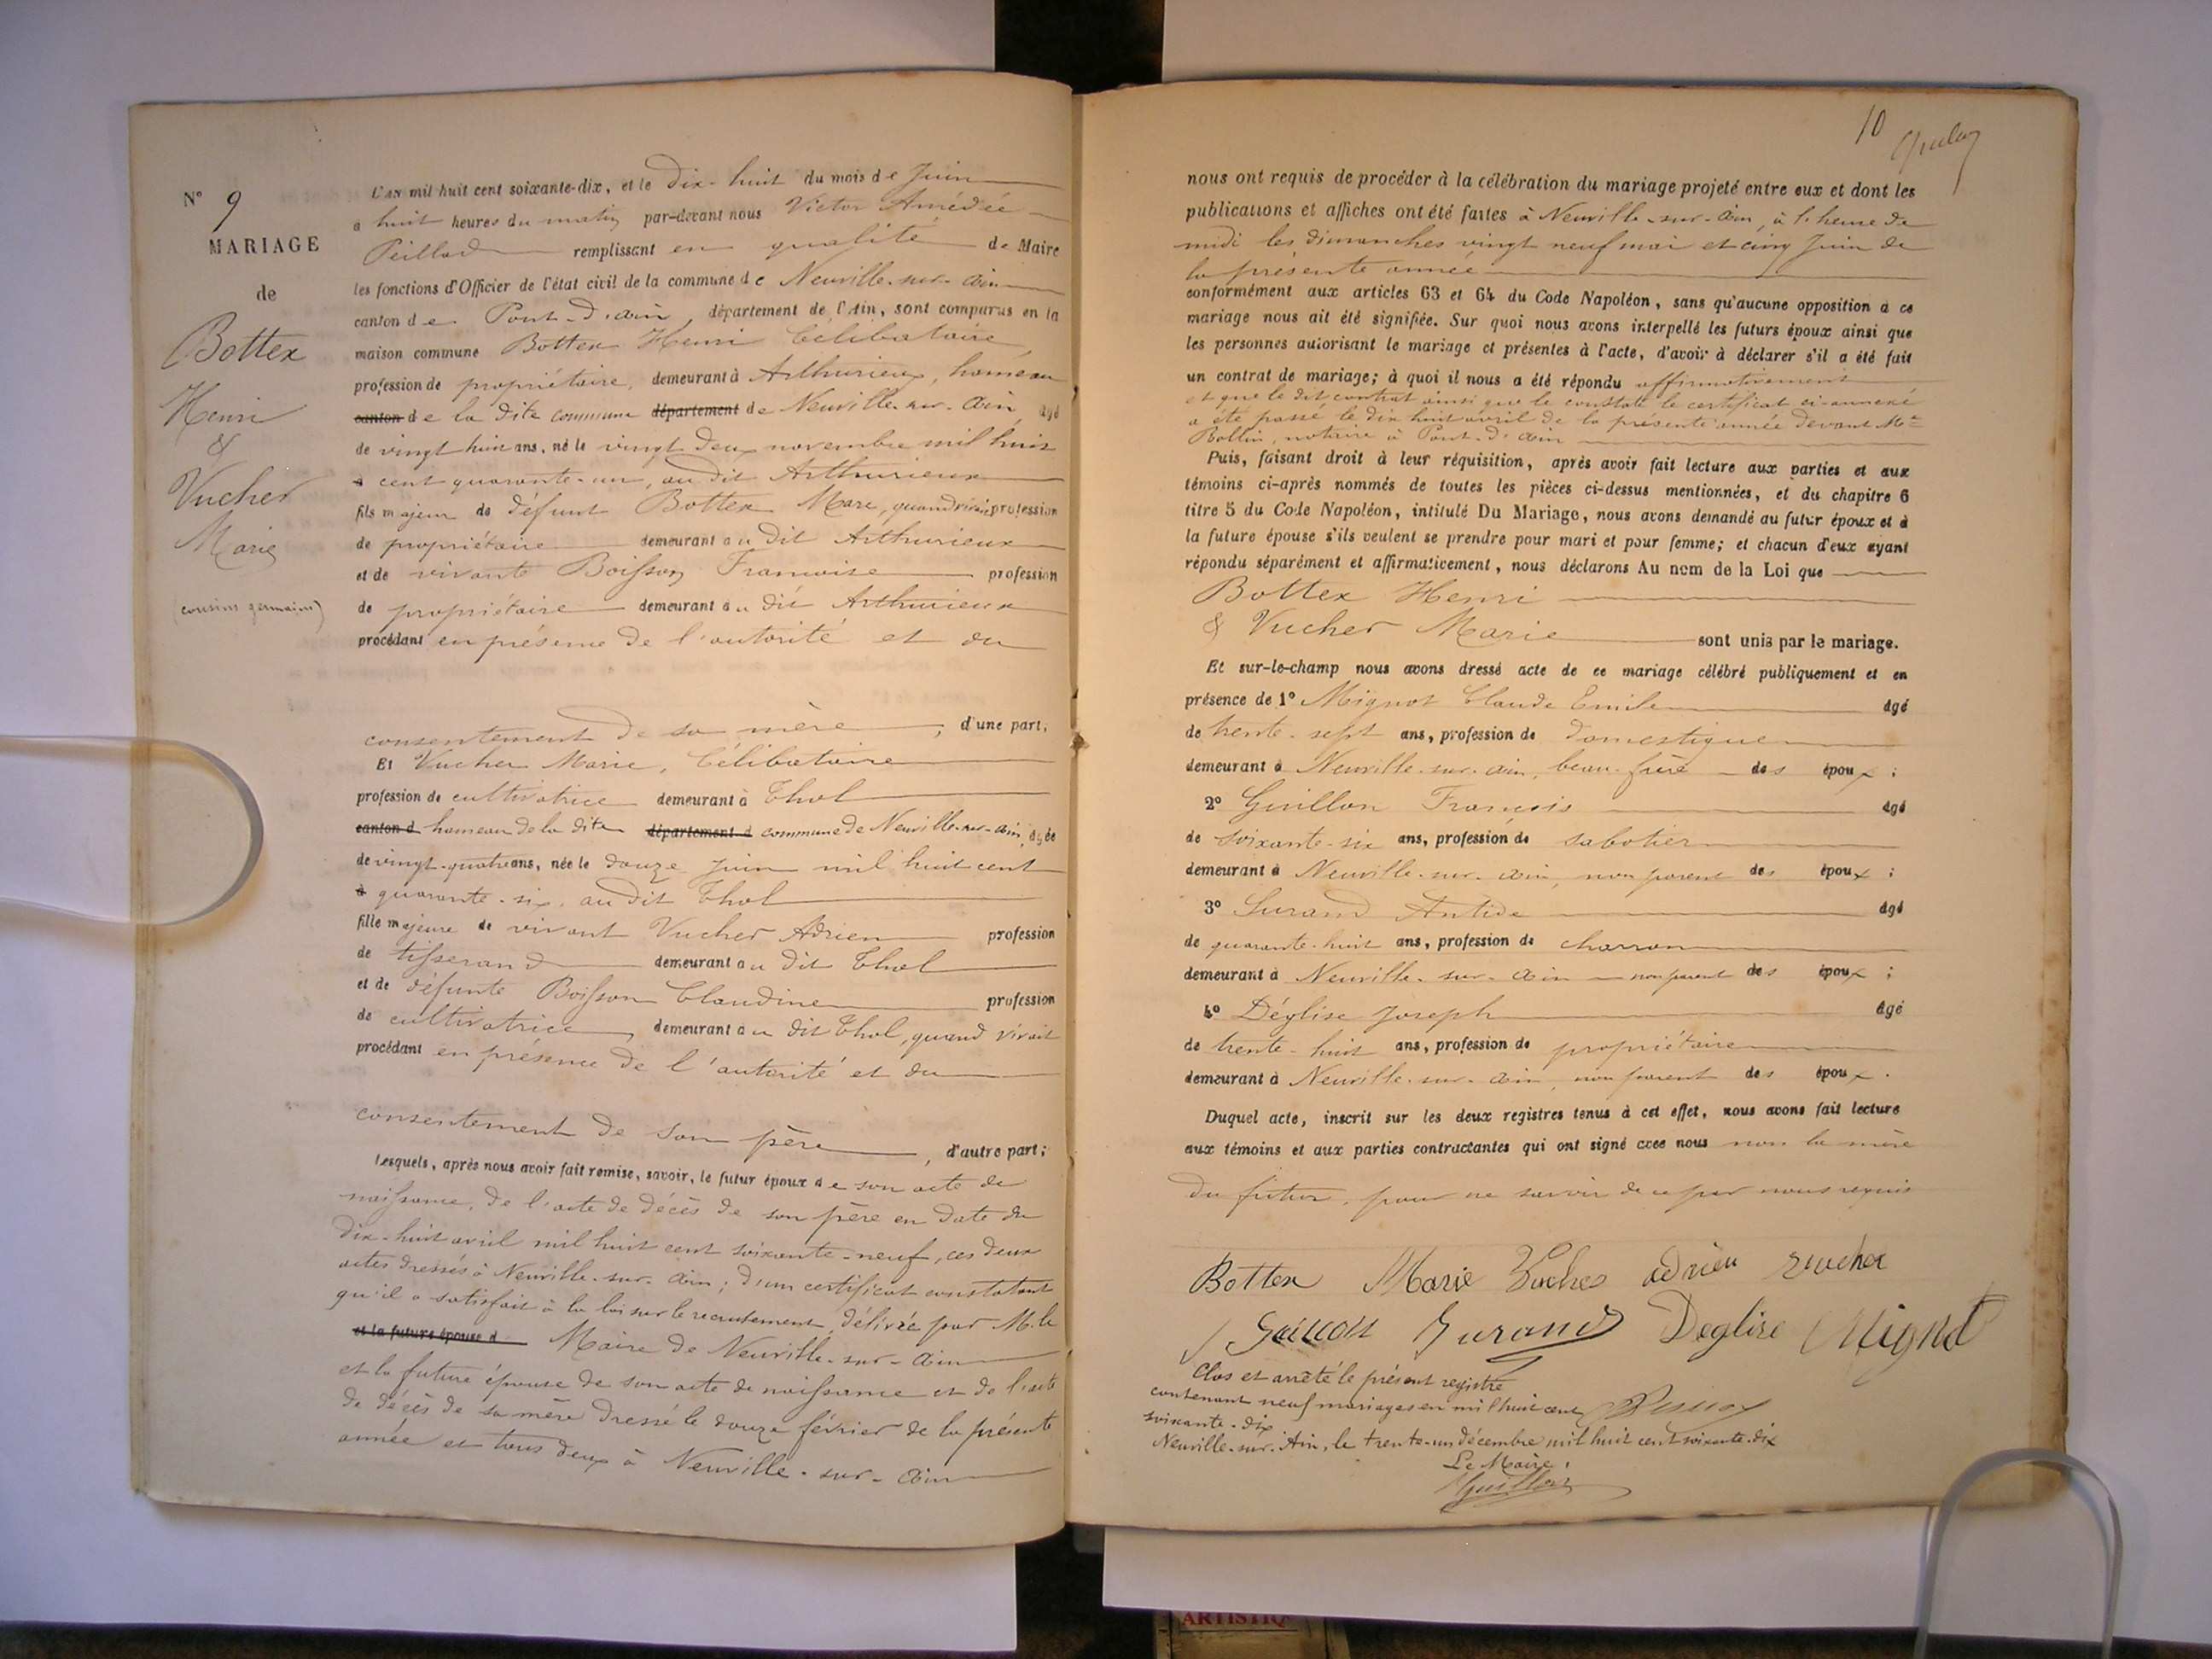 N° 9
MARIAGE
de
Bottex
Henri
&
Vucher
Marie
(cousins germains)
L'an mil huit cent soixante-dix, et le dix-huit du mois de Juin
à huit heures du matin par-devant nous Victor Amédée
Peillod remplissant en qualité de Maire
les fonctions d'Officier de l'état civil de la commune de Neuville-sur-Ain
canton de Pont-d'Ain, département de l'Ain, sont comparus en la
maison commune Bottex Henri Célibataire,
profession de propriétaire, demeurant à Arthurieux, hameau
canton de la dite commune département de Neuville-sur-Ain, âgé
de vingt huit ans, né le vingt deux novembre mil huit
à cent quarante-un, au dit Arthurieux
fils majeur de défunt Bottex Marc, quand vivait profession
de propriétaire demeurant au dit Arthurieux
et de vivante Boisson Francoise profession
de propriétaire demeurant au dit Arthurieux
procédant en présence de l'autorité et du
consentement de sa mère, d'une part,
Et Vucher Marie, Célibataire
profession de cultivatrice demeurant à Thol
canton d hameau de la dite département d commune de Neuville-sur-Ain, âgée
de vingt-quatre ans, née le douze Juin mil huit cent
à quarante-six, au dit Thol
fille majeure de vivant Vucher Adrien profession
de tisserand demeurant au dit Thol
et de défunte Boisson Claudine profession
de cultivatrice, demeurant au dit Thol, quand vivait
procédant en présence de l'autorité et du
consentement de son père, d'autre part;
Lesquels, après nous avoir fait remise, savoir, le futur époux de son acte de
naissance, de l'acte de décès de son père en date du
dix-huit avril mil huit cent soixante-neuf, ces deux
actes dressés à Neuville-sur-Ain; d'un certificat constatant
qu'il a satisfait à la loi sur le recrutement, délivré par M. le
et la future épouse d Maire de Neuville-sur-Ain
et la future épouse de son acte de naissance et de l'acte
de décès de sa mère dressé le douze février de la présente
année et tous deux à Neuville-sur-Ain
10
nous ont requis de procéder à la célébration du mariage projeté entre eux et dont les
publications et affiches ont été faites à Neuville-sur-Ain, à l'heure de
midi les dimanches vingt neuf mai et cinq Juin de
la présente année
conformément aux articles 63 et 64 du Code Napoléon, sans qu'aucune opposition à ce
mariage nous ait été signifiée. Sur quoi nous avons interpellé les futurs époux ainsi que
les personnes autorisant le mariage et présentes à l'acte, d'avoir à déclarer s'il a été fait
un contrat de mariage; à quoi il nous a été répondu affirmativement
et que le dit contrat ainsi que le constate le certificat ci-annexé
a été passé le dix huit avril de la présente année devant Me
Rollin, notaire à Pont-d'Ain
Puis, faisant droit à leur réquisition, après avoir fait lecture aux parties et aux
témoins ci-après nommés de toutes les pièces ci-dessus mentionnées, et du chapitre 6
titre 5 du Code Napoléon, intitulé Du Mariage, nous avons demandé au futur époux et à
la future épouse s'ils veulent se prendre pour mari et pour femme; et chacun d'eux ayant
répondu séparément et affirmativement, nous déclarons Au nom de la Loi que
Bottex Henri
& Vucher Marie sont unis par le mariage.
Et sur-le-champ nous avons dressé acte de ce mariage célébré publiquement et en
présence de 1° Mignot Claude Emile âgé
de trente-sept ans, profession de domestique
demeurant à Neuville-sur-Ain, beau-frère des époux;
2° Guillon François âgé
de soixante-six ans, profession de sabotier
demeurant à Neuville-sur-Ain, non parent des époux;
3° Surand Antide âgé
de quarante-huit ans, profession de charron
demeurant à Neuville-sur-Ain non parent des époux;
4° Déglise Joseph âgé
de trente-huit ans, profession de propriétaire
demeurant à Neuville-sur-Ain, non parent des époux.
Duquel acte, inscrit sur les deux registres tenus à cet effet, nous avons fait lecture
aux témoins et aux parties contractantes qui ont signé avec nous non la mère
du futur, pour ne savoir de ce par nous requis
Bottex Marie Vucher adrien vucher
Guillon Surand Deglise Mignot
Clos et arrêté le présent registre
contenant neuf mariages en mil huit cent
soixante-dix
Neuville-sur-Ain, le trente-un décembre mil huit cent soixante-dix
Le Maire,
Guillon
ARTISTIQ